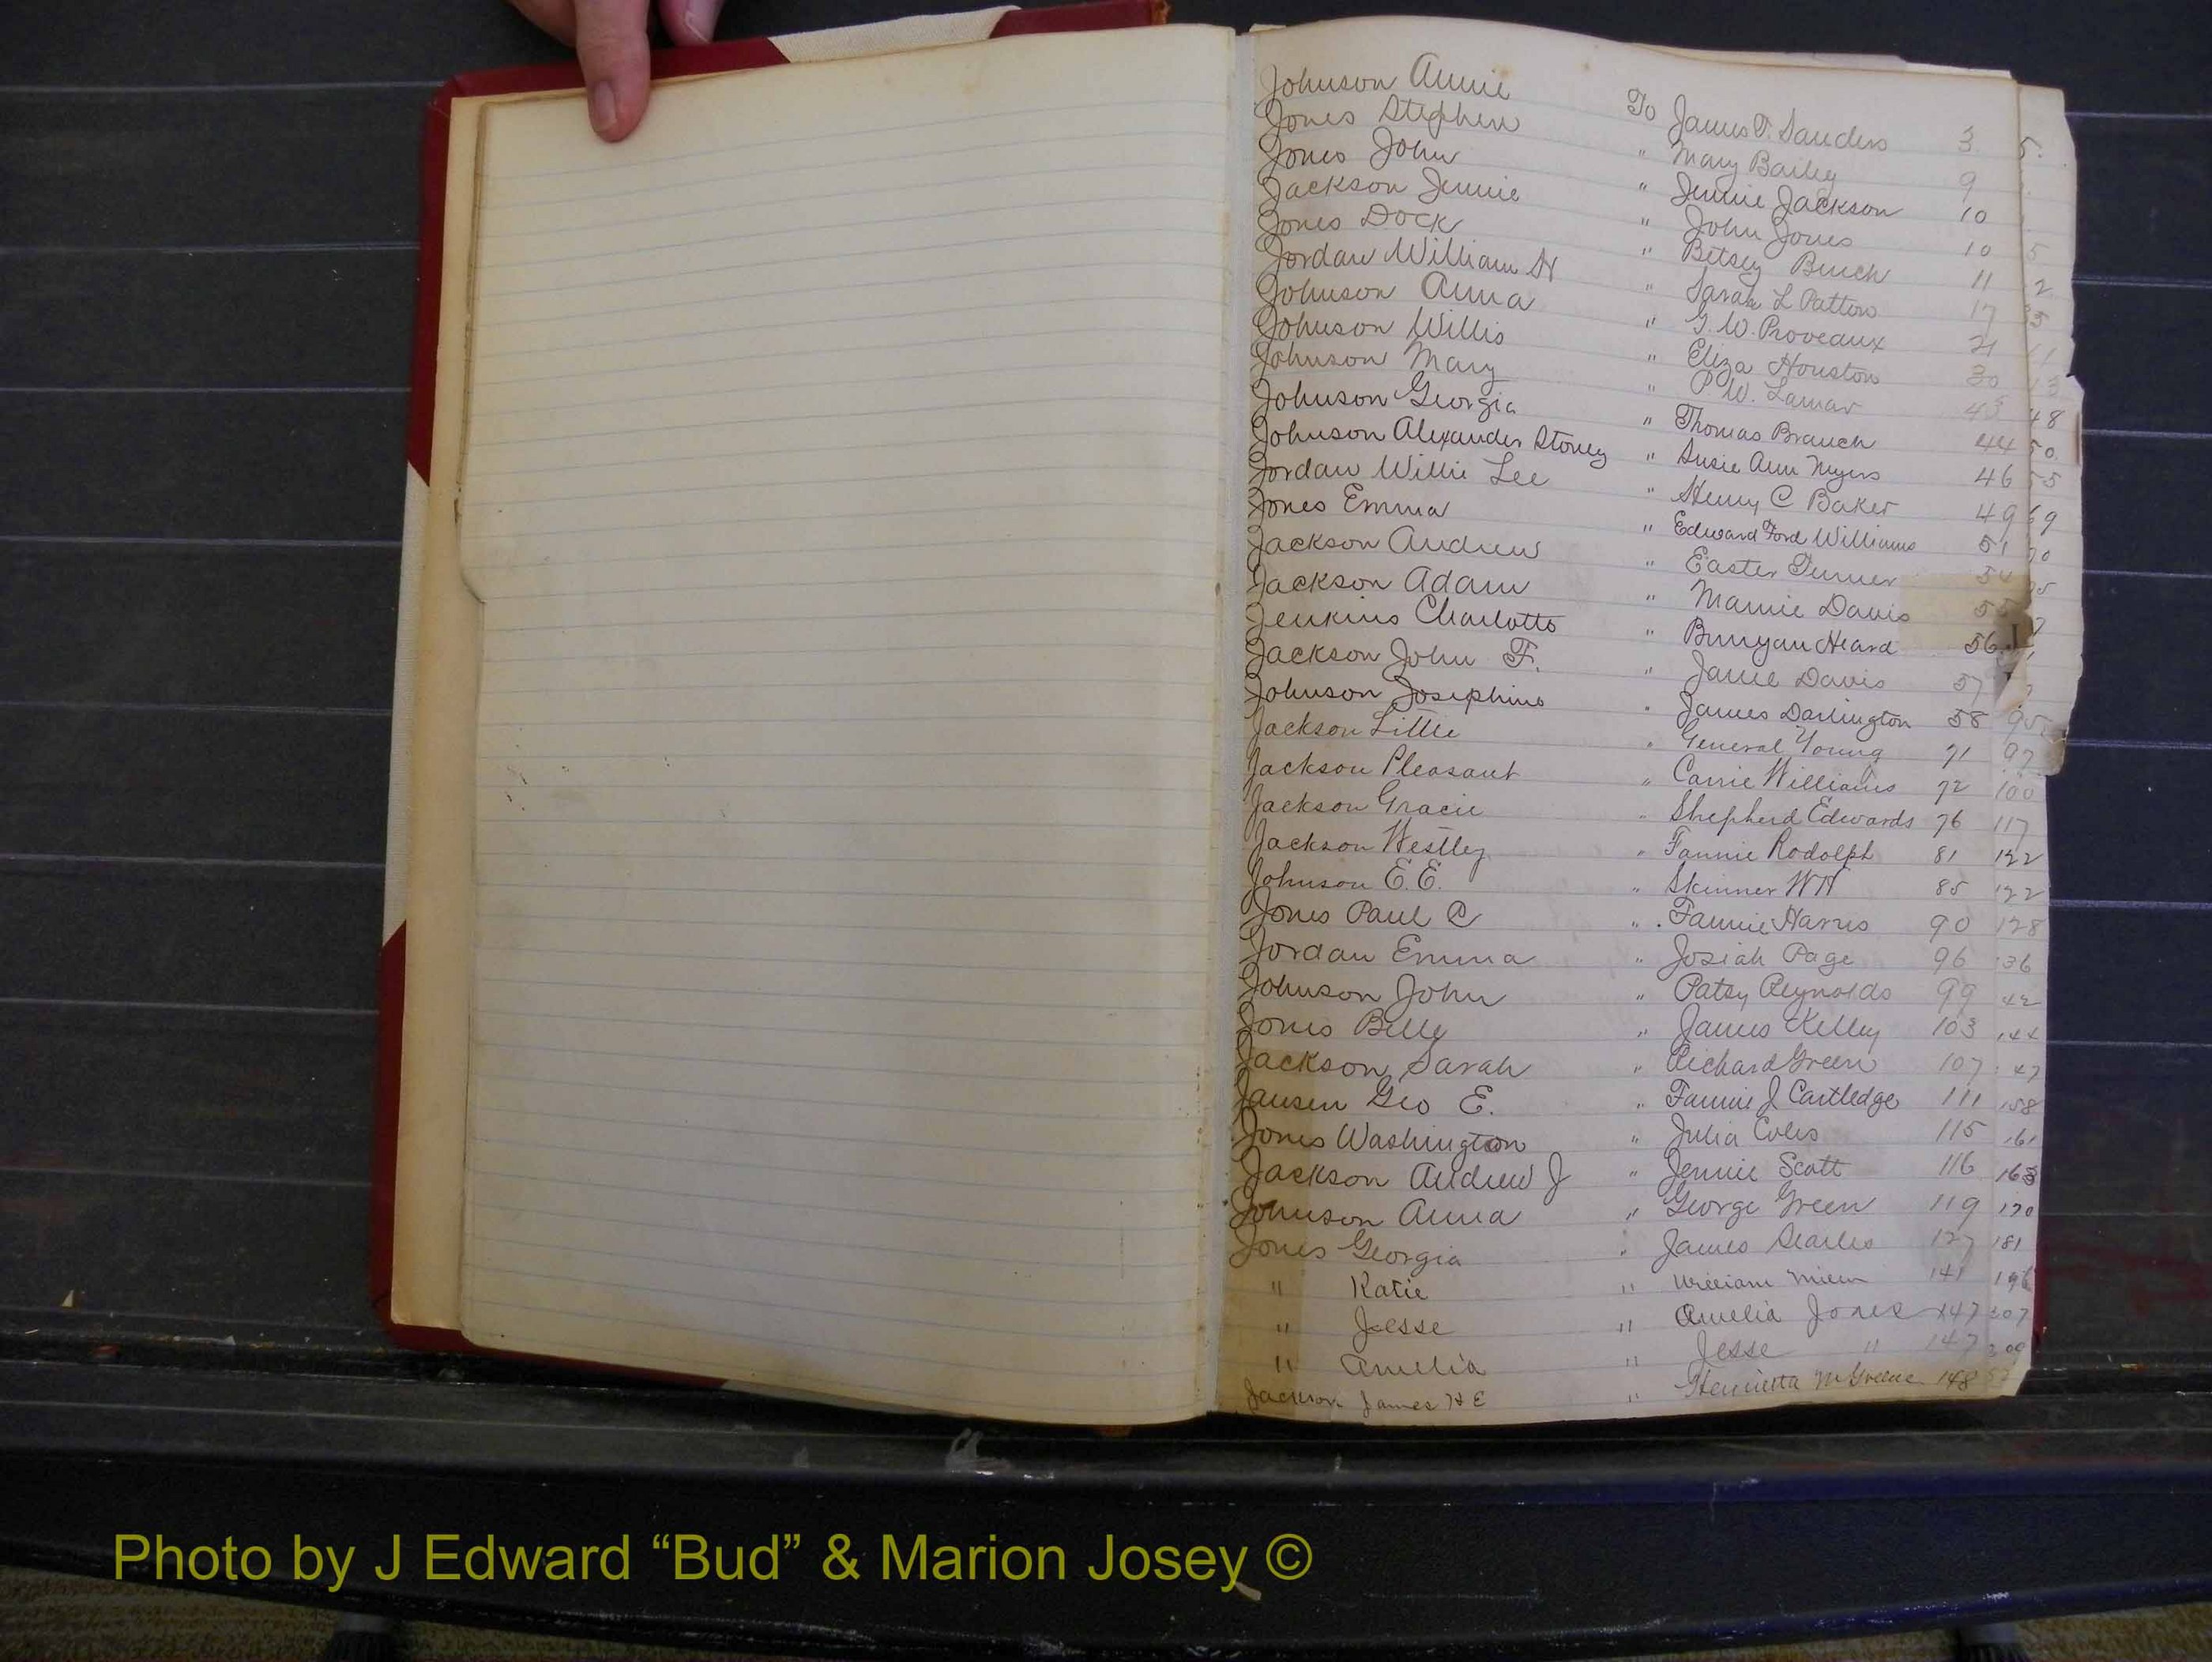 Johnson Annie To James T. Sanders 3 5.
Jones Stephen " Mary Bailey 9
Jones John " Jennie Jackson 10
Jackson Jennie " John Jones 10 5
Jones Dock " Betsey Bench 11 2
Jordan William H " Sarah L Patton 17
Johnson Anna " G. W. Proveaux 21 11
Johnson Willis " Eliza Houston 30 13
Johnson Mary " P. W. Lamar 43 48
Johnson Georgia " Thomas Branch 44 50
Johnson Alexander Stoney " Susie Ann Myers 46 55
Jordan Willie Lee " Henry C Baker 49 69
Jones Emma " Edward Ford Williams 51 70
Jackson Andrew " Easter Turner 54
Jackson Adam " Mamie Davis 55
Jenkins Charlotte " Bunyan Heard 56
Jackson John F. " Janie Davis 57
Johnson Josephine " James Darlington 58 95
Jackson Lillie " General Young 71 97
Jackson Pleasant " Carrie Williams 72 100
Jackson Gracie " Shepherd Edwards 76 117
Jackson Westley " Fannie Rodolph 81 122
Johnson E. E. " Skinner W H 85 122
Jones Paul C " Fannie Harris 90 128
Jordan Emma " Josiah Page 96 136
Johnson John " Patsy Reynolds 99 42
Jones Billy " James Kelley 103 144
Jackson Sarah " Richard Green 107 47
Jansen Geo E. " Fannie J Cartledge 111 158
Jones Washington " Julia Coles 115 161
Jackson Andrew J " Jennie Scott 116 163
Johnson Anna " George Green 119 170
Jones Georgia " James Searles 127 181
" Katie " William 141 196
" Jesse " Amelia Jones 147 207
" Amelia " Jesse " 147 209
Jackson James H E " Henrietta M Greene 148
Photo by J Edward “Bud” & Marion Josey ©